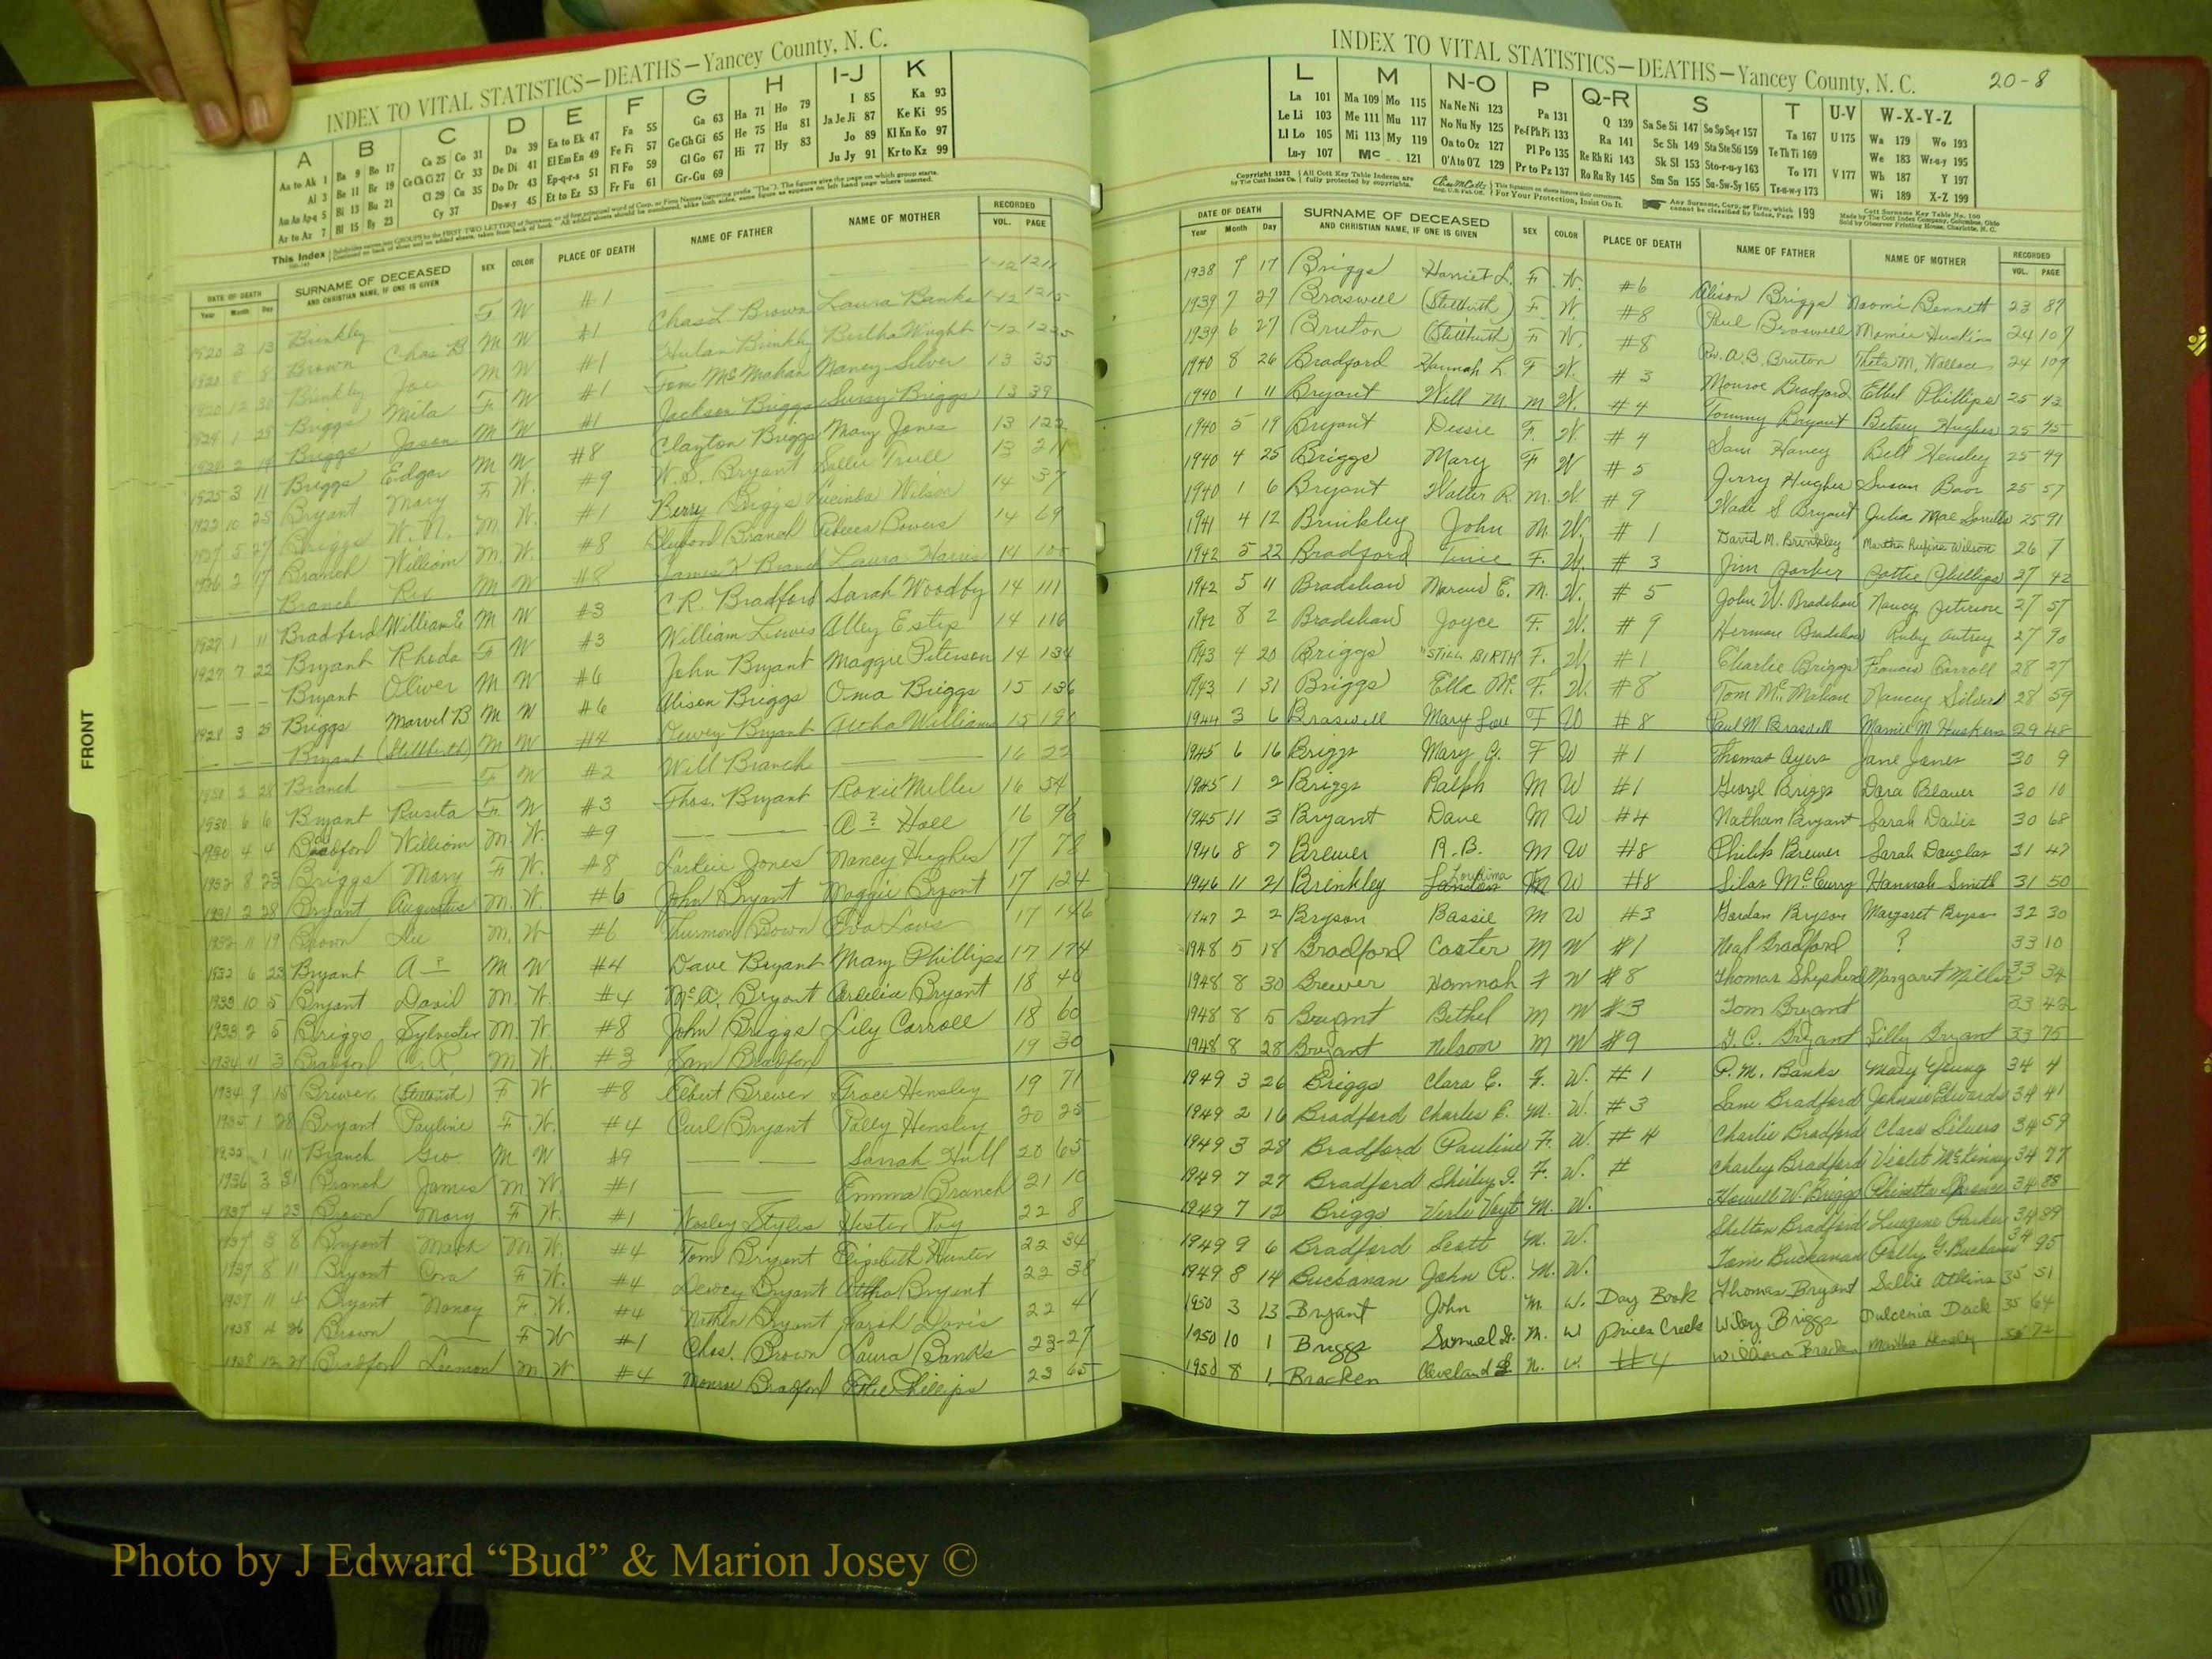 INDEX TO VITAL STATISTICS—DEATHS—Yancey County, N. C.
A B C D E F G H I-J K
Aa to Ak 1 Ba 9 Bo 17 Ca 25 Co 31 Da 39 Ea to Ek 47 Fa 55 Ga 63 Ha 71 Ho 79 I 85 Ka 93
Al 3 Be 11 Br 19 Ce Ch Ci 27 Cr 33 De Di 41 El Em En 49 Fe Fi 57 Ge Gh Gi 65 He 75 Hu 81 Ja Je Ji 87 Ke Ki 95
Am An Ap-q 5 Bi 13 Bu 21 Cl 29 Cu 35 Do Dr 43 Ep-q-r-s 51 Fl Fo 59 Gl Go 67 Hi 77 Hy 83 Jo 89 Kl Kn Ko 97
Ar to Az 7 Bl 15 By 23 Cy 37 Du-w-y 45 Et to Ez 53 Fr Fu 61 Gr-Gu 69 Ju Jy 91 Kr to Kz 99
This Index
DATE OF DEATH SURNAME OF DECEASED AND CHRISTIAN NAME, IF ONE IS GIVEN SEX COLOR PLACE OF DEATH NAME OF FATHER NAME OF MOTHER RECORDED
Year Month Day VOL. PAGE
1920 3 13 Brinkley F W #1 1-12 1211
1920 8 8 Brown Chas B M W #1 Chas L Brown Laura Banks 1-12 1215
1920 12 30 Brinkley Joe M W #1 Hulan Brinkly Bertha Wright 1-12 1225
1924 1 25 Briggs Mila F W #1 Tom McMahan Nancy Silver 13 35
Briggs Jason M W #1 Jackson Briggs Sursy Briggs 13 39
1925 3 11 Briggs Edgar M W #8 Clayton Briggs Mary Jones 13 122
1922 10 25 Bryant Mary F W. #9 W. S. Bryant Sallie Trull 13 211
1927 5 27 Briggs W. N. M. W. #1 Berry Briggs Lucinda Wilson 14 37
1926 2 17 Branch William M. W. #8 Branch Rebecca Powers 14 69
— — Branch Rex M W #8 James K Branch Laura Harris 14 100
1927 1 11 Bradford William E M W #3 C.R. Bradford Sarah Woodby 14 111
1927 7 22 Bryant Rhoda F W #3 William Lewis Alley Estep 14 116
— — — Bryant Oliver M W #6 John Bryant Maggie Peterson 14 134
1928 3 29 Briggs Marvel B M W #6 Alison Briggs Oma Briggs 15 136
— — — Bryant (Stillbirth) M W #4 Dewey Bryant Aetha Williams 15 190
1930 3 28 Branch F W #2 Will Branch — — 16 22
1930 6 6 Bryant Rusita F W #3 Thos. Bryant Roxie Miller 16 54
1930 4 4 Bradford William M W. #9 — — A ? Hall 16 96
1932 8 23 Briggs Mary F W. #8 Jones Nancy Hughes 17 78
1931 2 28 Bryant Augustus M. W. #6 John Bryant Maggie Bryant 17 124
1932 11 19 Brown Lee M. W #6 Thurmon Brown Eva Laws 17 146
1932 6 23 Bryant A — ? M W #4 Dave Bryant Mary Phillips 17 174
1933 10 5 Bryant David M. W. #4 McA. Bryant Cordelia Bryant 18 40
1933 2 5 Briggs Sylvester M. W. #8 John Briggs Lily Carroll 18 60
1934 11 3 Bradford C. R. M. W. #3 Sam Bradford 19 30
1934 9 15 Brewer (Stillbirth) F W #8 Elbert Brewer Grace Hensley 19 71
1935 1 28 Bryant Pauline F. W. #4 Carl Bryant Polly Hensley 20 25
1935 1 11 Branch Geo. M W #9 — — Sarah Hall 20 65
1936 3 31 Branch James M. W. #1 — — Emma Branch 21 10
1937 4 23 Brown Mary F W. #1 Wesley Styles Hester Ray 22 8
1937 3 8 Bryant Mack M. W. #4 Tom Bryant Elizabeth Hunter 22 34
1937 8 11 Bryant Cora F W. #4 Dewey Bryant Aetha Bryant 22 38
1937 11 4 Bryant Nancy F. W. #4 Nathan Bryant Sarah Davis 22 41
1938 4 26 Brown — F W #1 Chas. Brown Laura Banks 23-27
1938 12 29 Bradford Leemon M W #4 Monroe Bradford Ethel Phillips 23 65
FRONT
INDEX TO VITAL STATISTICS—DEATHS—Yancey County, N. C. 20-8
L M N-O P Q-R S T U-V W-X-Y-Z
La 101 Ma 109 Mo 115 Na Ne Ni 123 Pa 131 Q 139 Sa Se Si 147 So Sp Sq-r 157 Ta 167 U 175 Wa 179 Wo 193
Le Li 103 Me 111 Mu 117 No Nu Ny 125 Pe-f Ph Pi 133 Ra 141 Sc Sh 149 Sta Ste Sti 159 Te Th Ti 169 We 183 Wr-u-y 195
Ll Lo 105 Mi 113 My 119 Oa to Oz 127 Pl Po 135 Re Rh Ri 143 Sk Sl 153 Sto-r-u-y 163 To 171 V 177 Wh 187 Y 197
Lu-y 107 Mc 121 O'A to O'Z 129 Pr to Pz 137 Ro Ru Ry 145 Sm Sn 155 Su-Sw-Sy 165 Tr-u-w-y 173 Wi 189 X-Z 199
Copyright 1932 by The Cott Index Co. All Cott Key Table Indexes are fully protected by copyrights. For Your Protection, Insist On It. Any Surname, Corp. or Firm, which cannot be classified by Index, Page 199
DATE OF DEATH SURNAME OF DECEASED AND CHRISTIAN NAME, IF ONE IS GIVEN SEX COLOR PLACE OF DEATH NAME OF FATHER NAME OF MOTHER RECORDED
Year Month Day VOL. PAGE
1938 9 17 Briggs Harriet L. F. W. #6 Alison Briggs Naomi Bennett 23 87
1939 7 27 Braswell (Stillbirth) F. W. #8 Paul Braswell Mamie Huskins 24 107
1939 6 27 Bruton (Stillbirth) F W. #8 Rev. A. B. Bruton Theta M. Wallace 24 109
1940 8 26 Bradford Hannah L. F W. #3 Monroe Bradford Ethel Phillips 25 42
1940 1 11 Bryant Will M. M W. #4 Tommy Bryant Betsey Hughes 25 45
1940 5 19 Bryant Dessie F. W. #4 Sam Haney Bell Hensley 25 49
1940 4 25 Briggs Mary F W #5 Jerry Hughes Susan 25 57
1940 1 6 Bryant Walter R. M. W. #9 Wade S Bryant Julia Mae Sorrells 25 91
1941 4 12 Brinkley John M. W. #1 David M. Brinkley Martha Rufina Wilson 26 7
1942 5 22 Bradford F. W. #3 Jim Parker Lottie Phillips 27 42
1942 5 11 Bradshaw Marcus E. M. W. #5 John W. Bradshaw Nancy Peterson 27 57
1942 8 2 Bradshaw Joyce F. W. #9 Herman Bradshaw Ruby Autrey 27 90
1943 4 20 Briggs "STILL BIRTH F. W. #1 Charlie Briggs Frances Carroll 28 27
1943 1 31 Briggs Ella Mc. F. W. #8 Tom McMahan Nancy Silvers 28 59
1944 3 6 Braswell Mary Lou F W #8 Paul M. Braswell Mamie M Huskins 29 48
1945 6 16 Briggs Mary G. F W #1 Thomas Ayers Jane Jones 30 9
1945 1 2 Briggs Ralph M W #1 Georgl Briggs Dora Beaver 30 10
1945 11 3 Bryant Dave M W #4 Nathan Bryant Sarah Davis 30 68
1946 8 7 Brewer R. B. M W #8 Philip Brewer Sarah Douglas 31 47
1946 11 21 Brinkley W #8 Silas McCurry Hannah Smith 31 50
1947 2 2 Bryson Bassie M W #3 Gordan Bryson Margaret Bryson 32 30
1948 5 18 Bradford Coster M W #1 Neal Bradford ? 33 10
1948 8 30 Brewer Hannah F W #8 Thomas Shepherd Margaret Miller 33 34
1948 8 5 Bryant Bethel M W #3 Tom Bryant 33 42
1948 8 28 Bryant Nelson M W #9 G. C. Bryant Lilly Bryant 33 75
1949 3 26 Briggs Clara E. F. W. #1 P. M. Banks Mary Young 34 4
1949 2 16 Bradford Charles E. M. W. #3 Sam Bradford Johnnie Edwards 34 41
1949 3 28 Bradford Pauline F. W. #4 Charlie Bradford Clara Silvers 34 59
1949 7 27 Bradford Shirley J. F. W. # Charley Bradford Violet McKinney 34 77
1949 7 12 Briggs Verle Voyt M. W. Howell W. Briggs 34 88
1949 9 6 Bradford Scott M. W. Shelton Bradford Luegene Parker 34 89
1949 8 14 Buckanan John R. M. W. Tom Buckanan Polly G. Buckanan 34 95
1950 3 13 Bryant John M. W. Day Book Thomas Bryant Sallie Atkins 35 51
1950 10 1 Briggs Samuel D. M. W Prices Creek Wiley Briggs Dulcenia Dack 35 64
1950 8 1 Bracken Cleveland M. W. #4 William Bracken Martha Hensley 35 72
Photo by J Edward “Bud” & Marion Josey ©